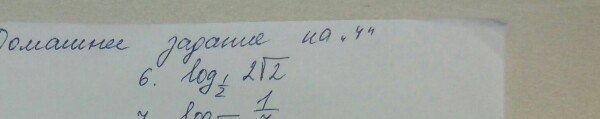 Домашнее задание на „4“
6. log_{1/2} 2√2
7. log 1/7